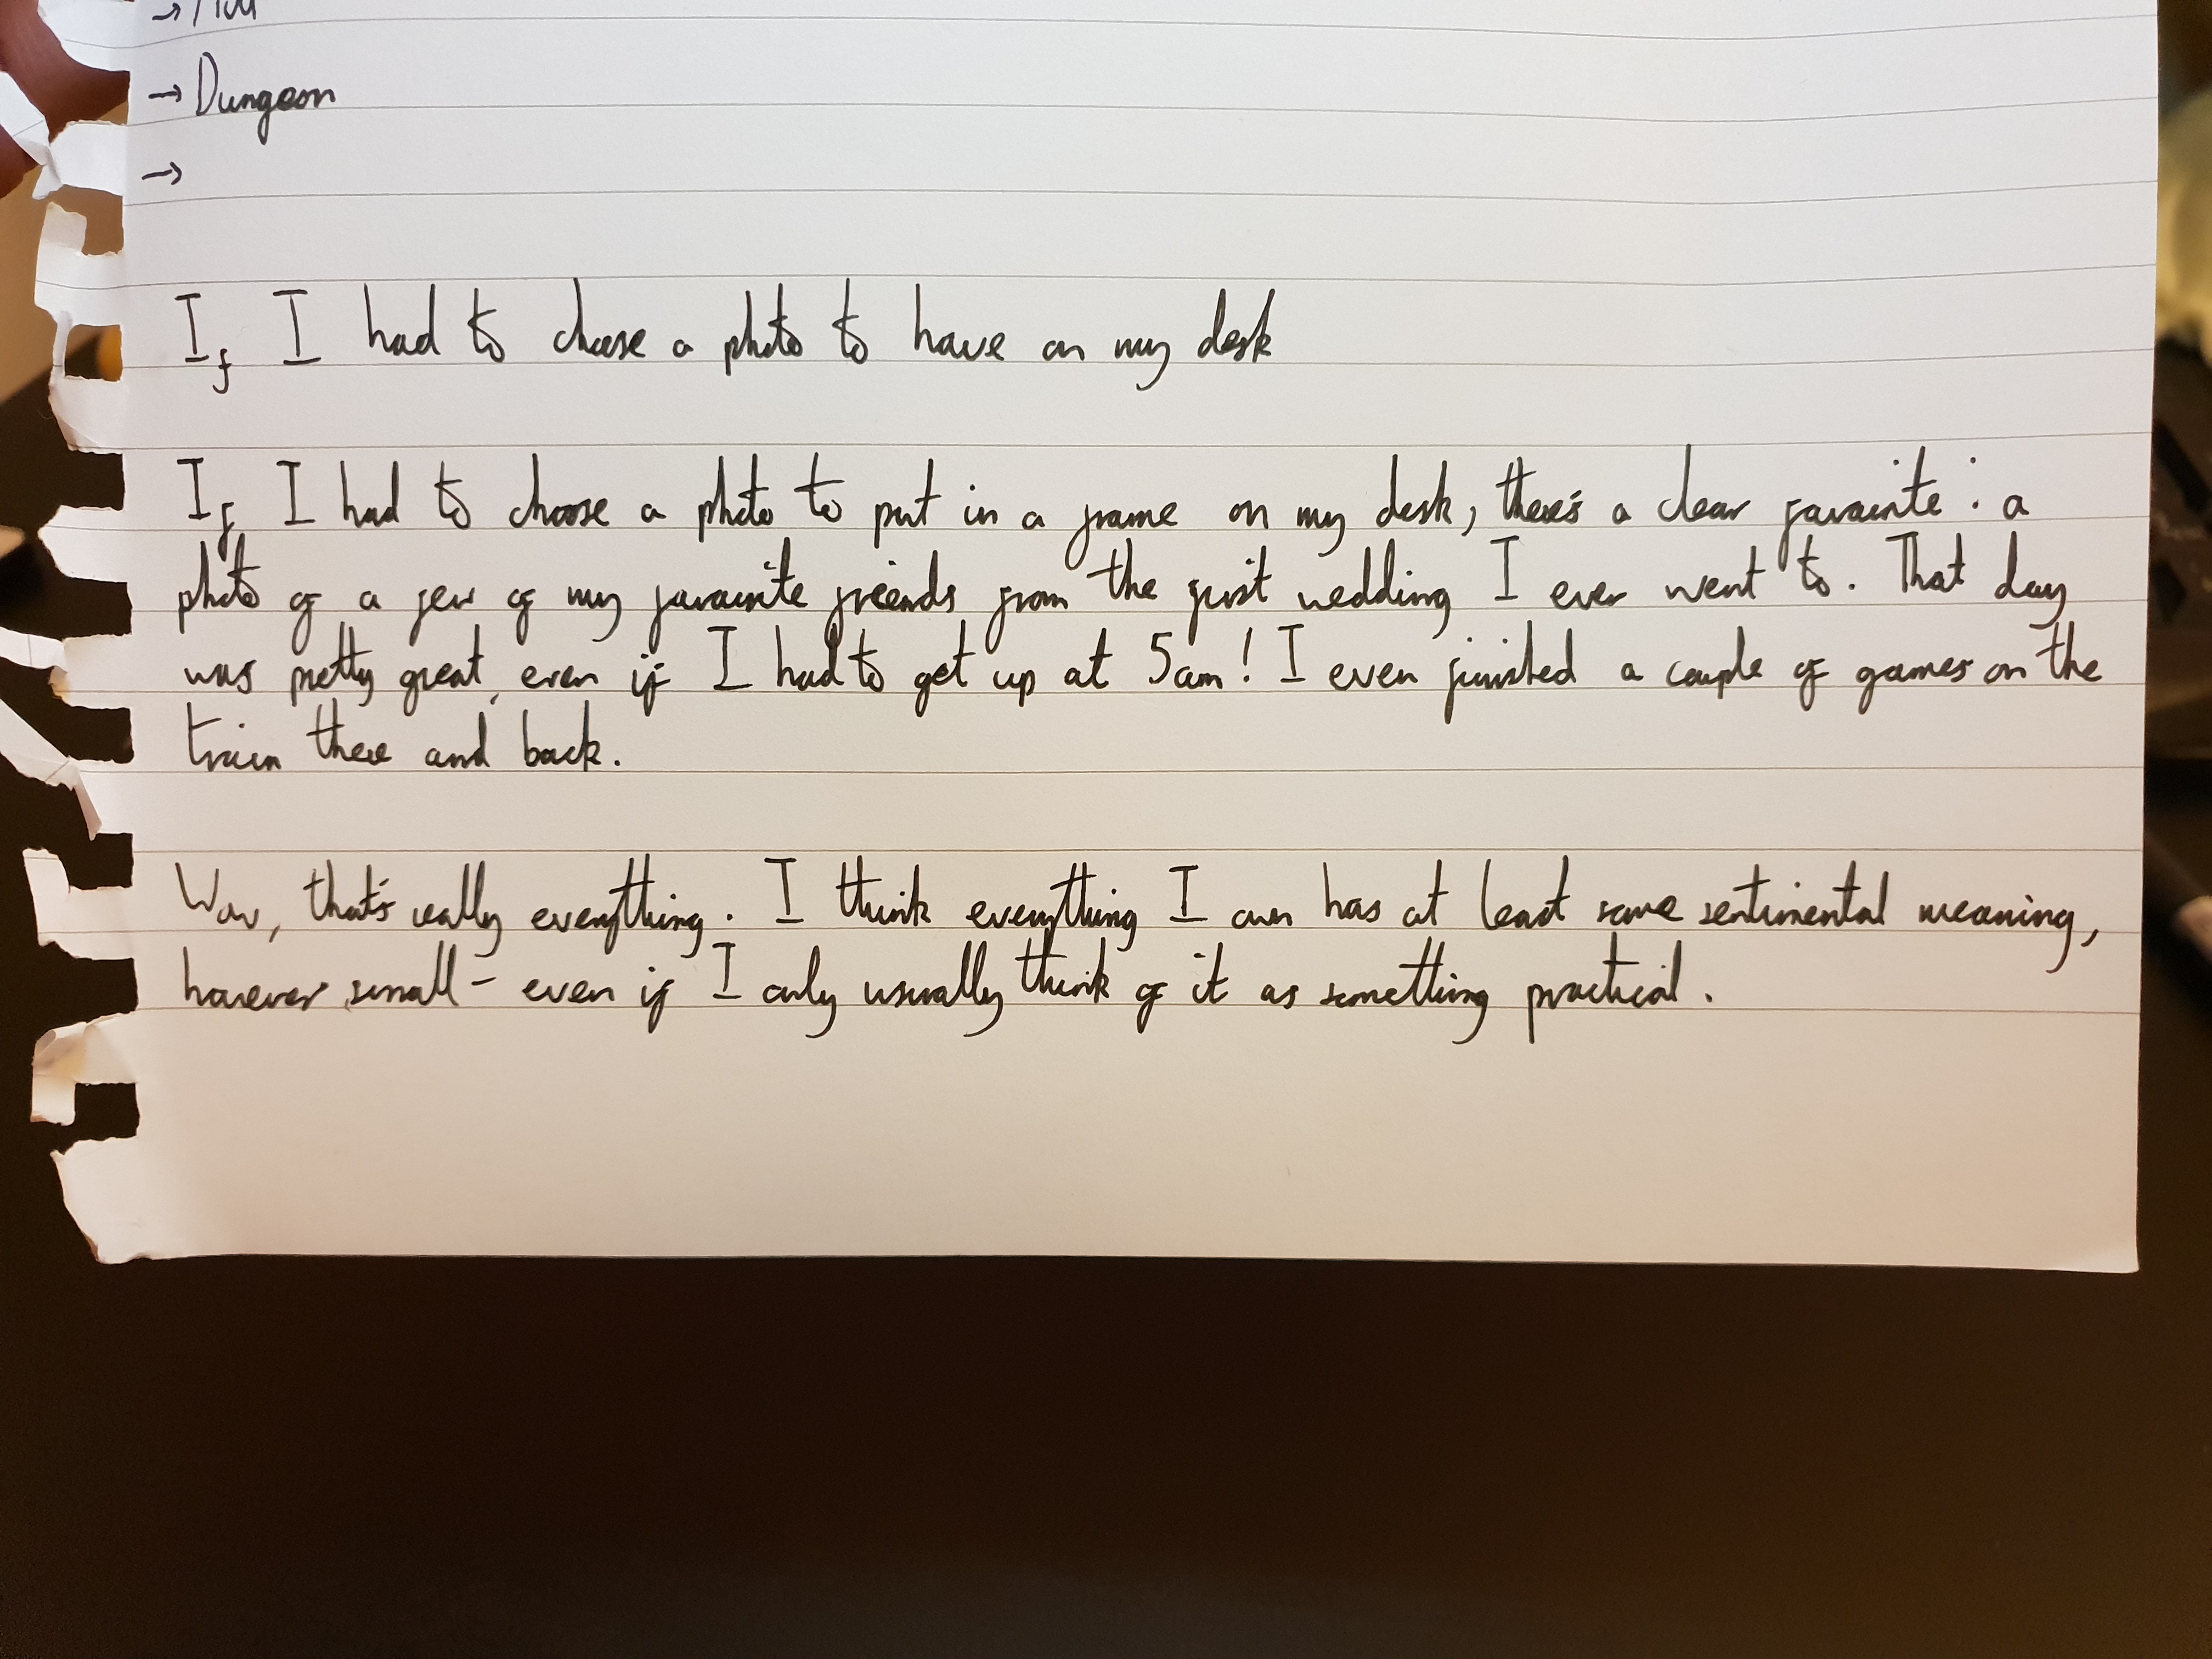 → Dungeon
→
If I had to choose a photo to have on my desk
If I had to choose a photo to put in a frame on my desk, there's a clear favourite: a
photo of a few of my favourite friends from the first wedding I ever went to. That day
was pretty great, even if I had to get up at 5am! I even finished a couple of games on the
train there and back.
Wow, that's really everything. I think everything I own has at least some sentimental meaning,
however small - even if I only usually think of it as something practical.